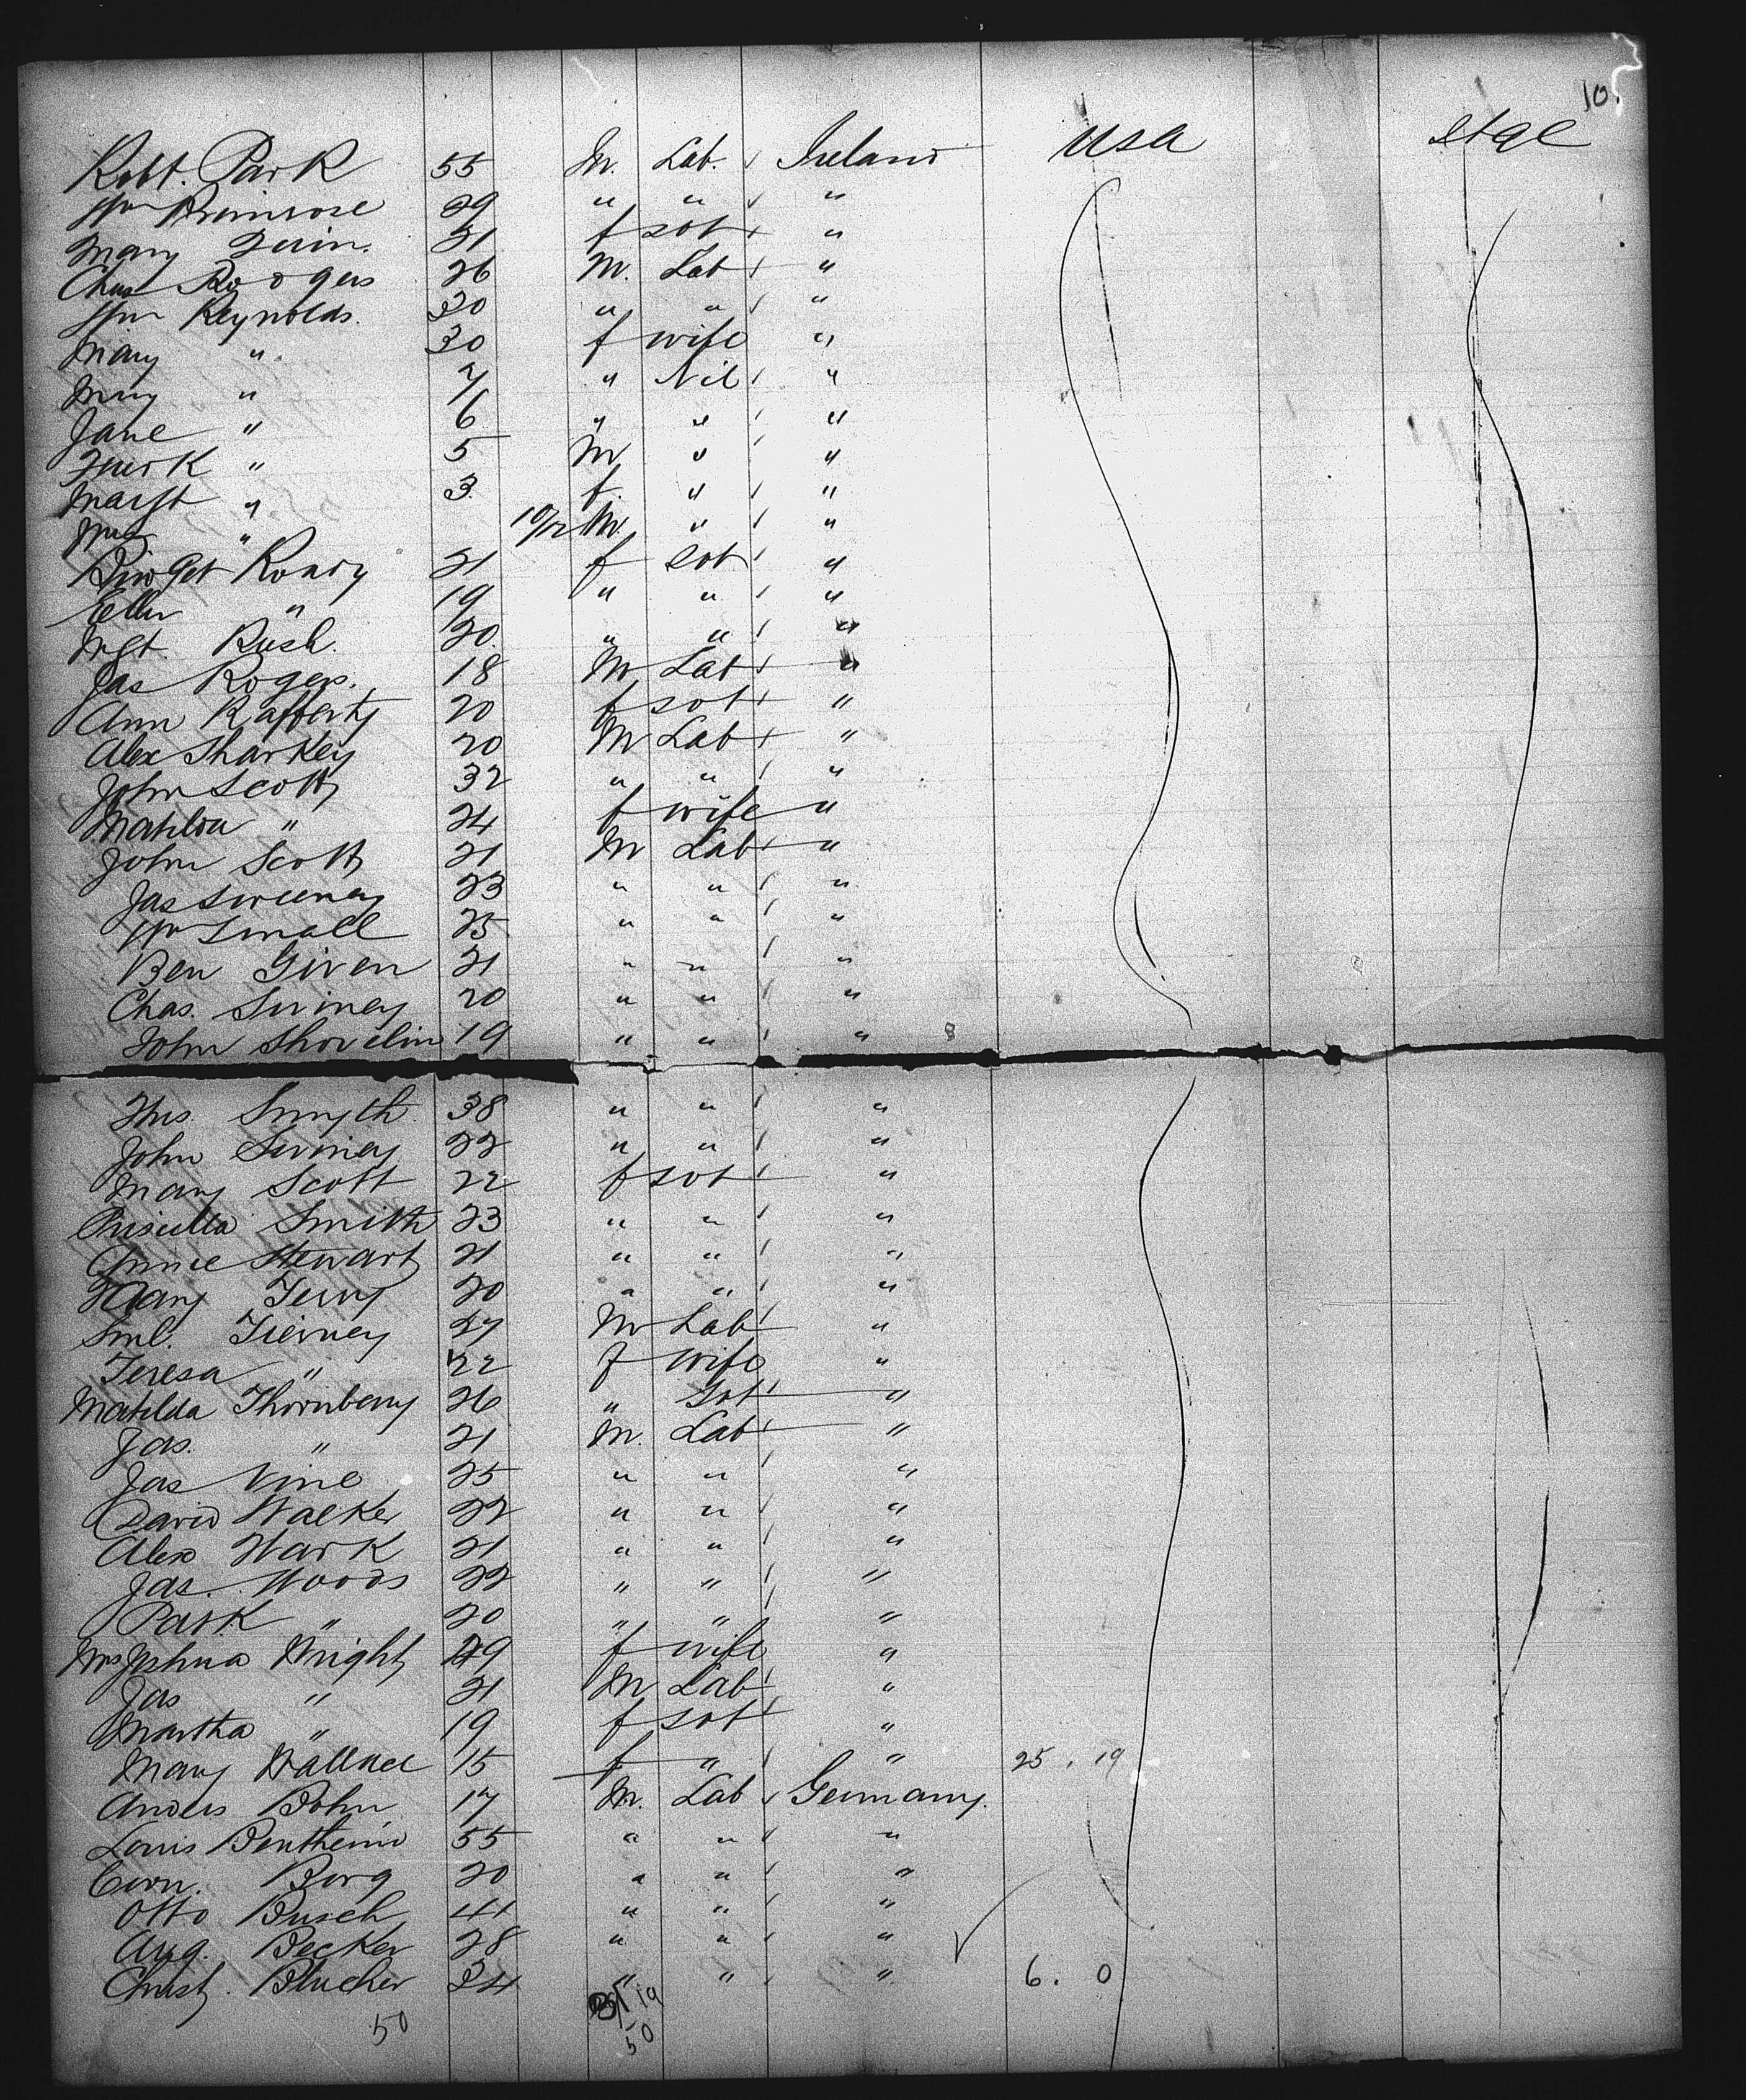 10
USA stge
Robt. Park 55 M. Lab. Ireland
Wm Primrose 29 " " "
Mary Quin 21 f sot "
Chas Rodgers 26 M. Lab "
Wm Reynolds 30 " " "
Mary " 30 f wife "
Mary " 7 " Nil "
Jane " 6 " " "
" 5 M " "
Margt " 3 f. " "
" 10/12 M " "
Bridget Roady 21 f sot "
Ellen " 19 " " "
Mgt. Rush 20 " " "
Jas Rogers. 18 M Lab "
Ann Rafferty 20 f sot "
Alex Sharkey 20 M Lab "
John Scott 32 " " "
Matilda " 24 f wife "
John Scott 21 M Lab "
Jas Sweeney 23 " " "
Wm Small 25 " " "
Ben Given 21 " " "
Chas. Swiney 20 " " "
John Shovelin 19 " " "
Thos. Smyth 38 " " "
John Swiney 22 " " "
Mary Scott 22 f sot "
Priscilla Smith 23 " " "
Annie Stewart 21 " " "
Mary Terry 20 " " "
Saml. Tierney 27 M Lab "
Teresa " 22 f wife "
Matilda Thornberry 26 " sot "
Jas. " 21 M. Lab "
Jas Vine 25 " " "
David Walker 22 " " "
Alex Wark 21 " " "
Jas. Woods 22 " " "
Patk " 20 " " "
Mrs Joshua Wright 49 f wife "
Jas " 21 M Lab "
Martha " 19 f sot "
Mary Wallace 15 f " " 25. 19
Anders Bohn 17 M. Lab Germany.
Louis Benthemd 55 " " "
Corn. Borg 20 " " "
Otto Busch 41 " " "
Aug. Becker 28 " " "
Christ. Blucher 24 " " " 6. 0
50 31 19
50